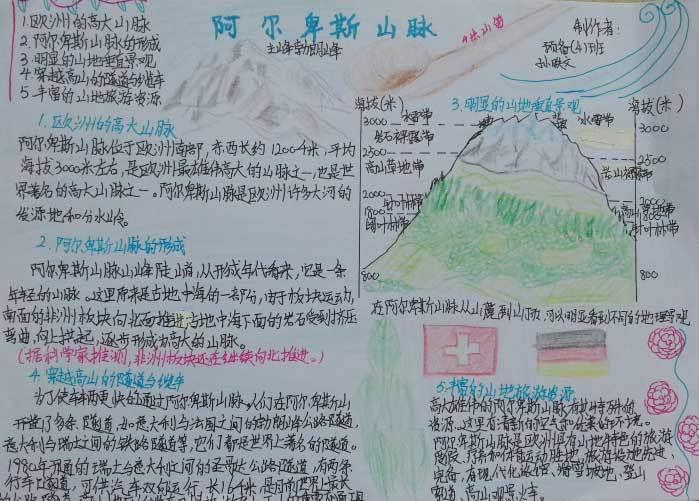 阿尔卑斯山脉
主山峰勃朗峰
制作者：
预备(4)班
1.欧洲的高大山脉
2.阿尔卑斯山脉的形成
3.明显的山地垂直景观
4.穿越高山的隧道与缆车
5.丰富的山地旅游资源
1.欧洲的高大山脉
阿尔卑斯山脉位于欧洲南部,东西长约1200千米,平均
海拔3000米左右,是欧洲最雄伟高大的山脉之一,也是世
界著名的高大山脉之一。阿尔卑斯山脉是欧洲许多大河的
发源地和分水岭。
2.阿尔卑斯山脉的形成
阿尔卑斯山脉山峰陡峭,从形成年代看来,它是一条
年轻的山脉。这里原来是古地中海的一部分,由于板块运动,
南面的非洲板块向北面推进,古地中海下面的岩石受到挤压
弯曲,向上拱起,逐步形成为高大的山脉。
(据科学家推测,非洲板块还在继续向北推进。)
3.明显的山地垂直景观
海拔(米)
海拔(米)
3000
冰雪带
冰雪带
3000
2500
2500
高山草地带
2000
2000
针叶林带
1800
800
800
在阿尔卑斯山脉从山麓到山顶,可以明显看到不同的地理景观
4.穿越高山的隧道与缆车
为了使车辆更快的通过阿尔卑斯山脉,人们在阿尔卑斯山
开凿了多条隧道,如意大利与法国之间的勃朗峰公路隧道,
意大利与瑞士之间的铁路隧道等,它们都是世界上著名的隧道。
1980年开通的瑞士与意大利之间的圣哥达公路隧道,有两条
行车隧道,可供汽车双向运行,长16千米,是目前世界上最长
5.丰富的山地旅游资源
高大雄伟的阿尔卑斯山脉有
资源。这里有清新的空气和优美的环境。
阿尔卑斯山脉是欧洲具有山地特色的旅游
完备,有现代化旅馆,滑雪场地,登山